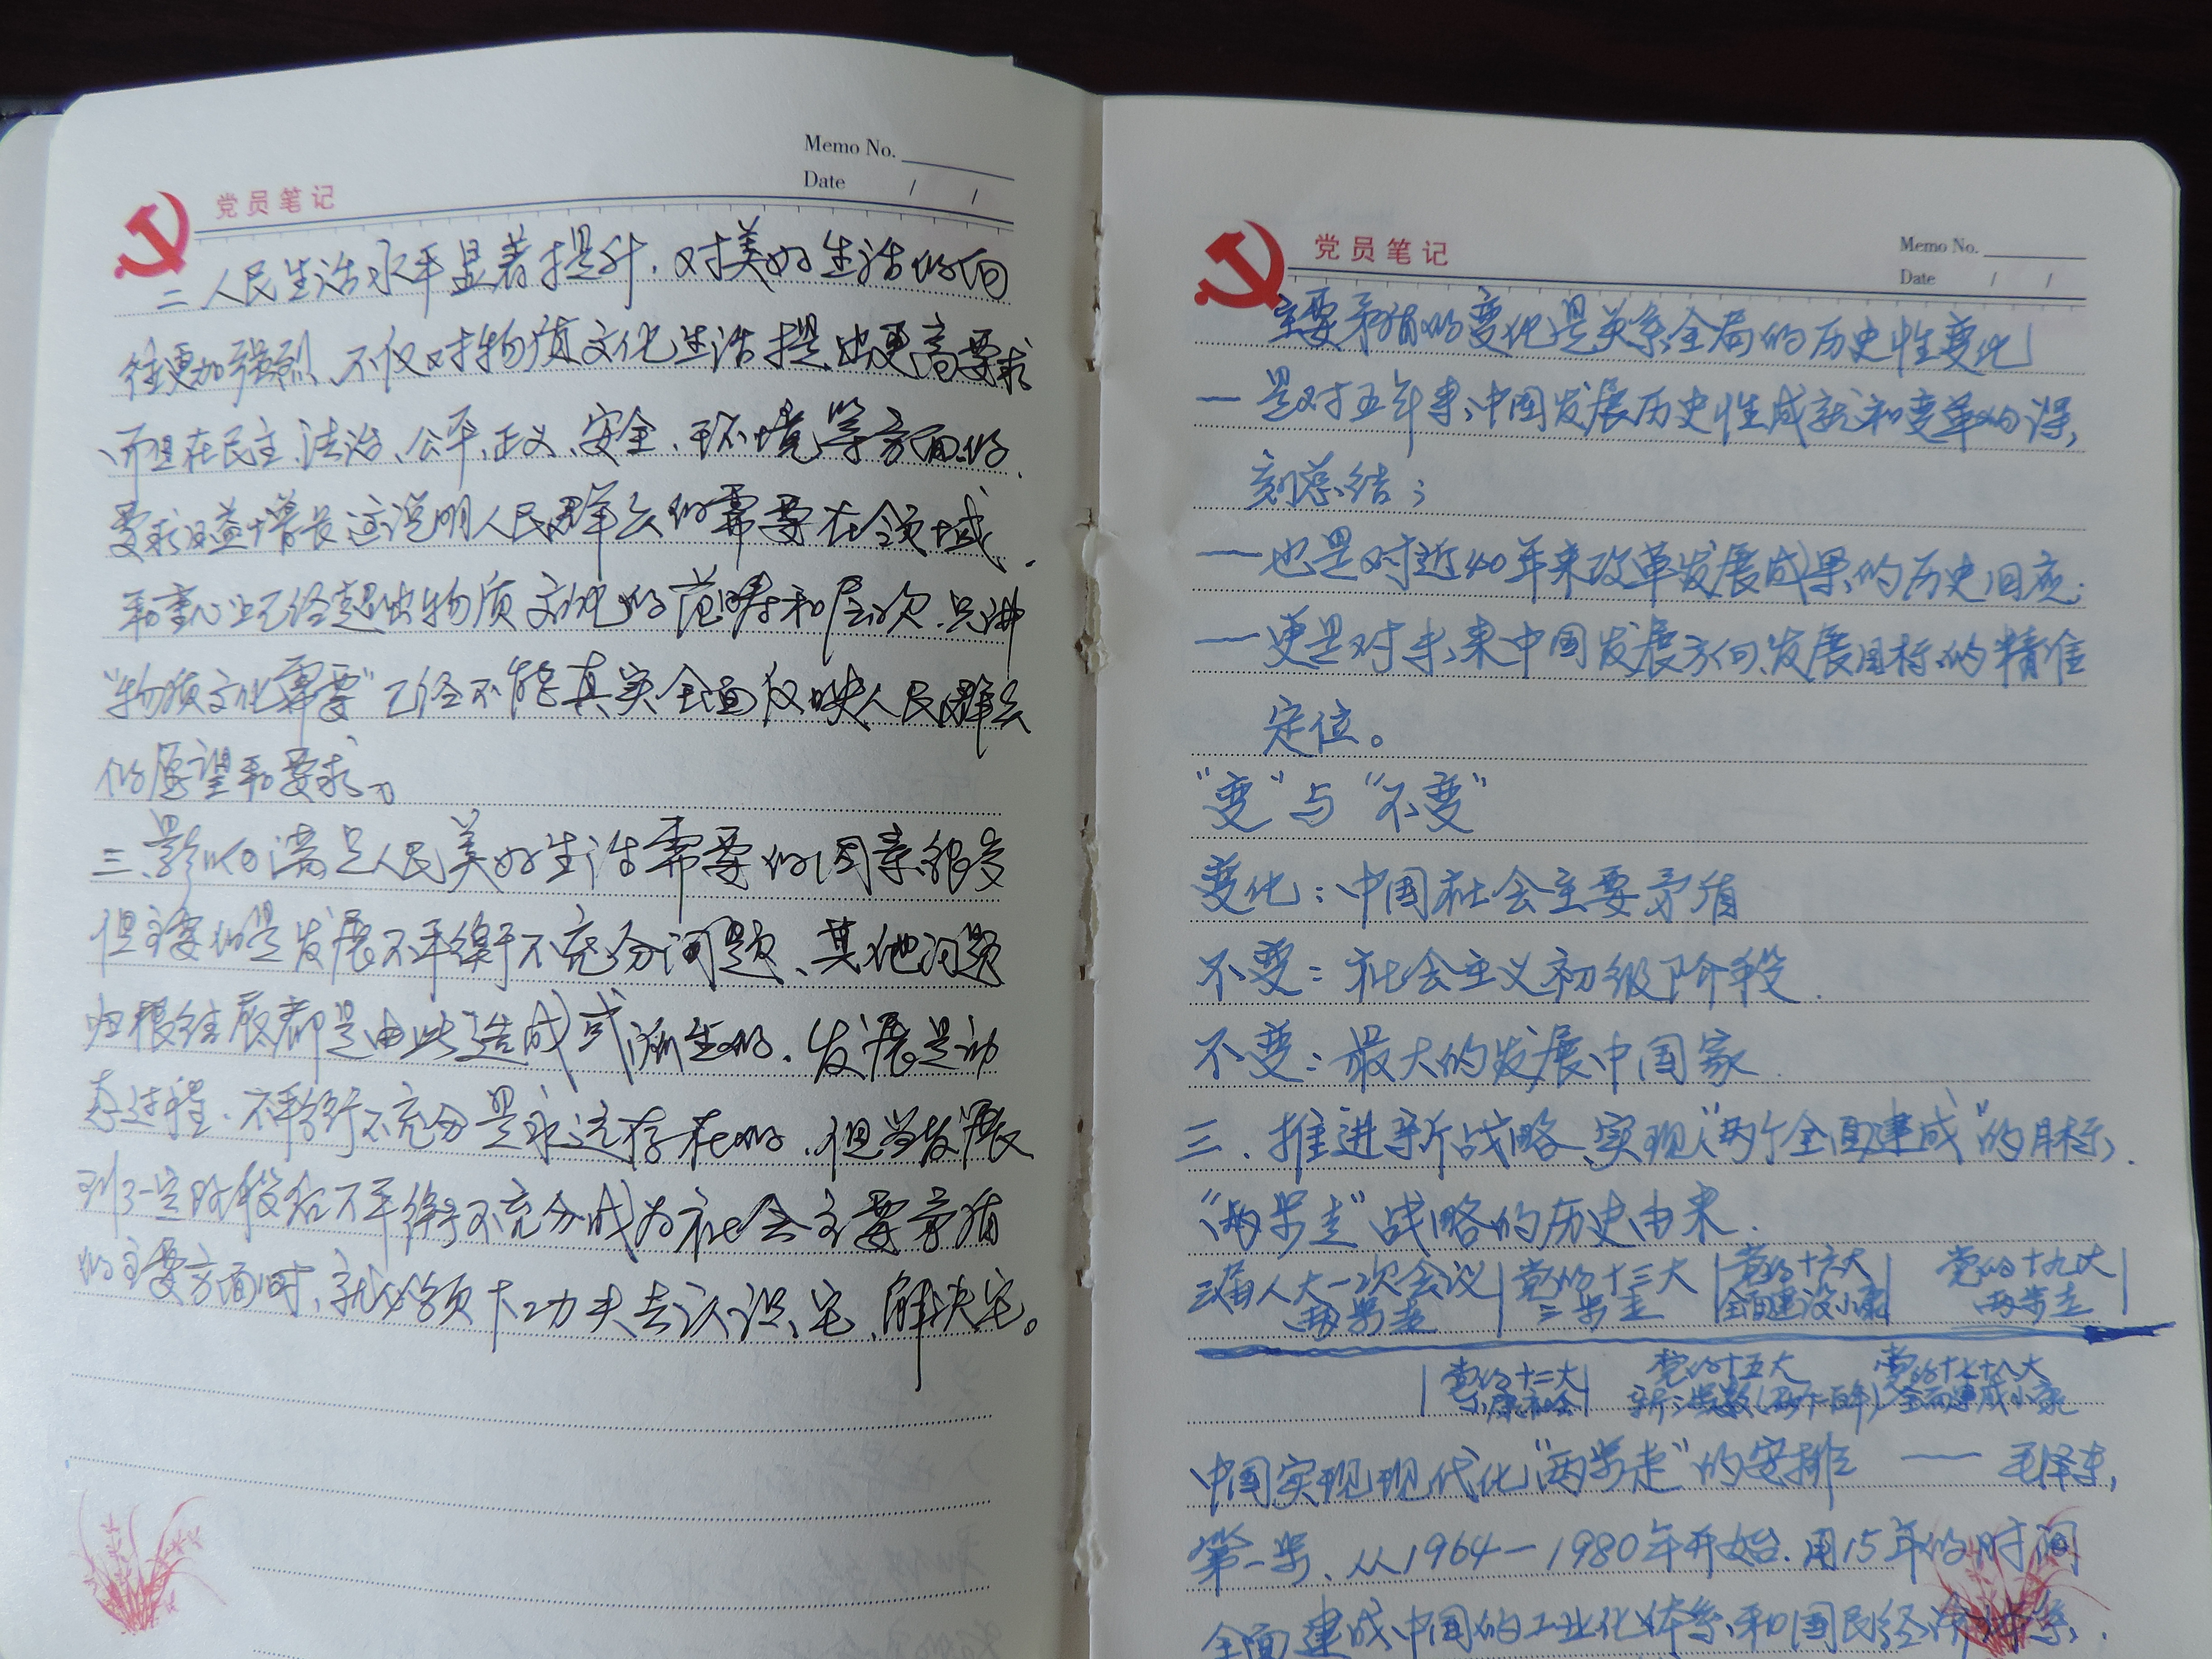 Memo No.
Date / /
党员笔记
二人民生活水平显著提升，对美好生活的向
往更加强烈、不仅对物质文化生活提出更高要求
、而且在民主、法治、公平、正义、安全、环境等方面的
要求日益增长这说明人民群众的需要在领域
和重心上已经超出物质文化的范畴和层次，只讲
“物质文化需要”已经不能真实全面反映人民群众
的愿望和要求。
三、影响满足人民美好生活需要的因素很多
但主要的是发展不平衡不充分问题、其他问题
归根结底都是由此造成或派生的，发展是动
态过程，不平衡不充分是永远存在的，但当发展
到了一定阶段后不平衡不充分成为社会主要矛盾
的主要方面时、就必须下功夫去认识它、解决它。
Memo No.
Date / /
党员笔记
主要矛盾的变化是关系全局的历史性变化
一是对五年来，中国发展历史性成就和变革的深
刻总结；
——也是对近40年来改革发展成果的历史回应；
——更是对未来中国发展方向、发展目标的精准
定位。
“变”与“不变”
变化：中国社会主要矛盾
不变：社会主义初级阶段.
不变：最大的发展中国家.
三、推进新战略、实现“两个全面建成”的目标，
“两步走”战略的历史由来.
三届人大一次会议 党的十三大 党的十六大 党的十九大
两步走 三步走 全面建设小康 两步走
党的十二大 党的十五大 党的十七十八大
小康社会 新三步走(两个一百年) 全面建成小康
中国实现现代化“两步走”的安排 —— 毛泽东，
第一步、从1964—1980年开始，用15年的时间
全面建成中国的工业化体系，和国民经济体系，